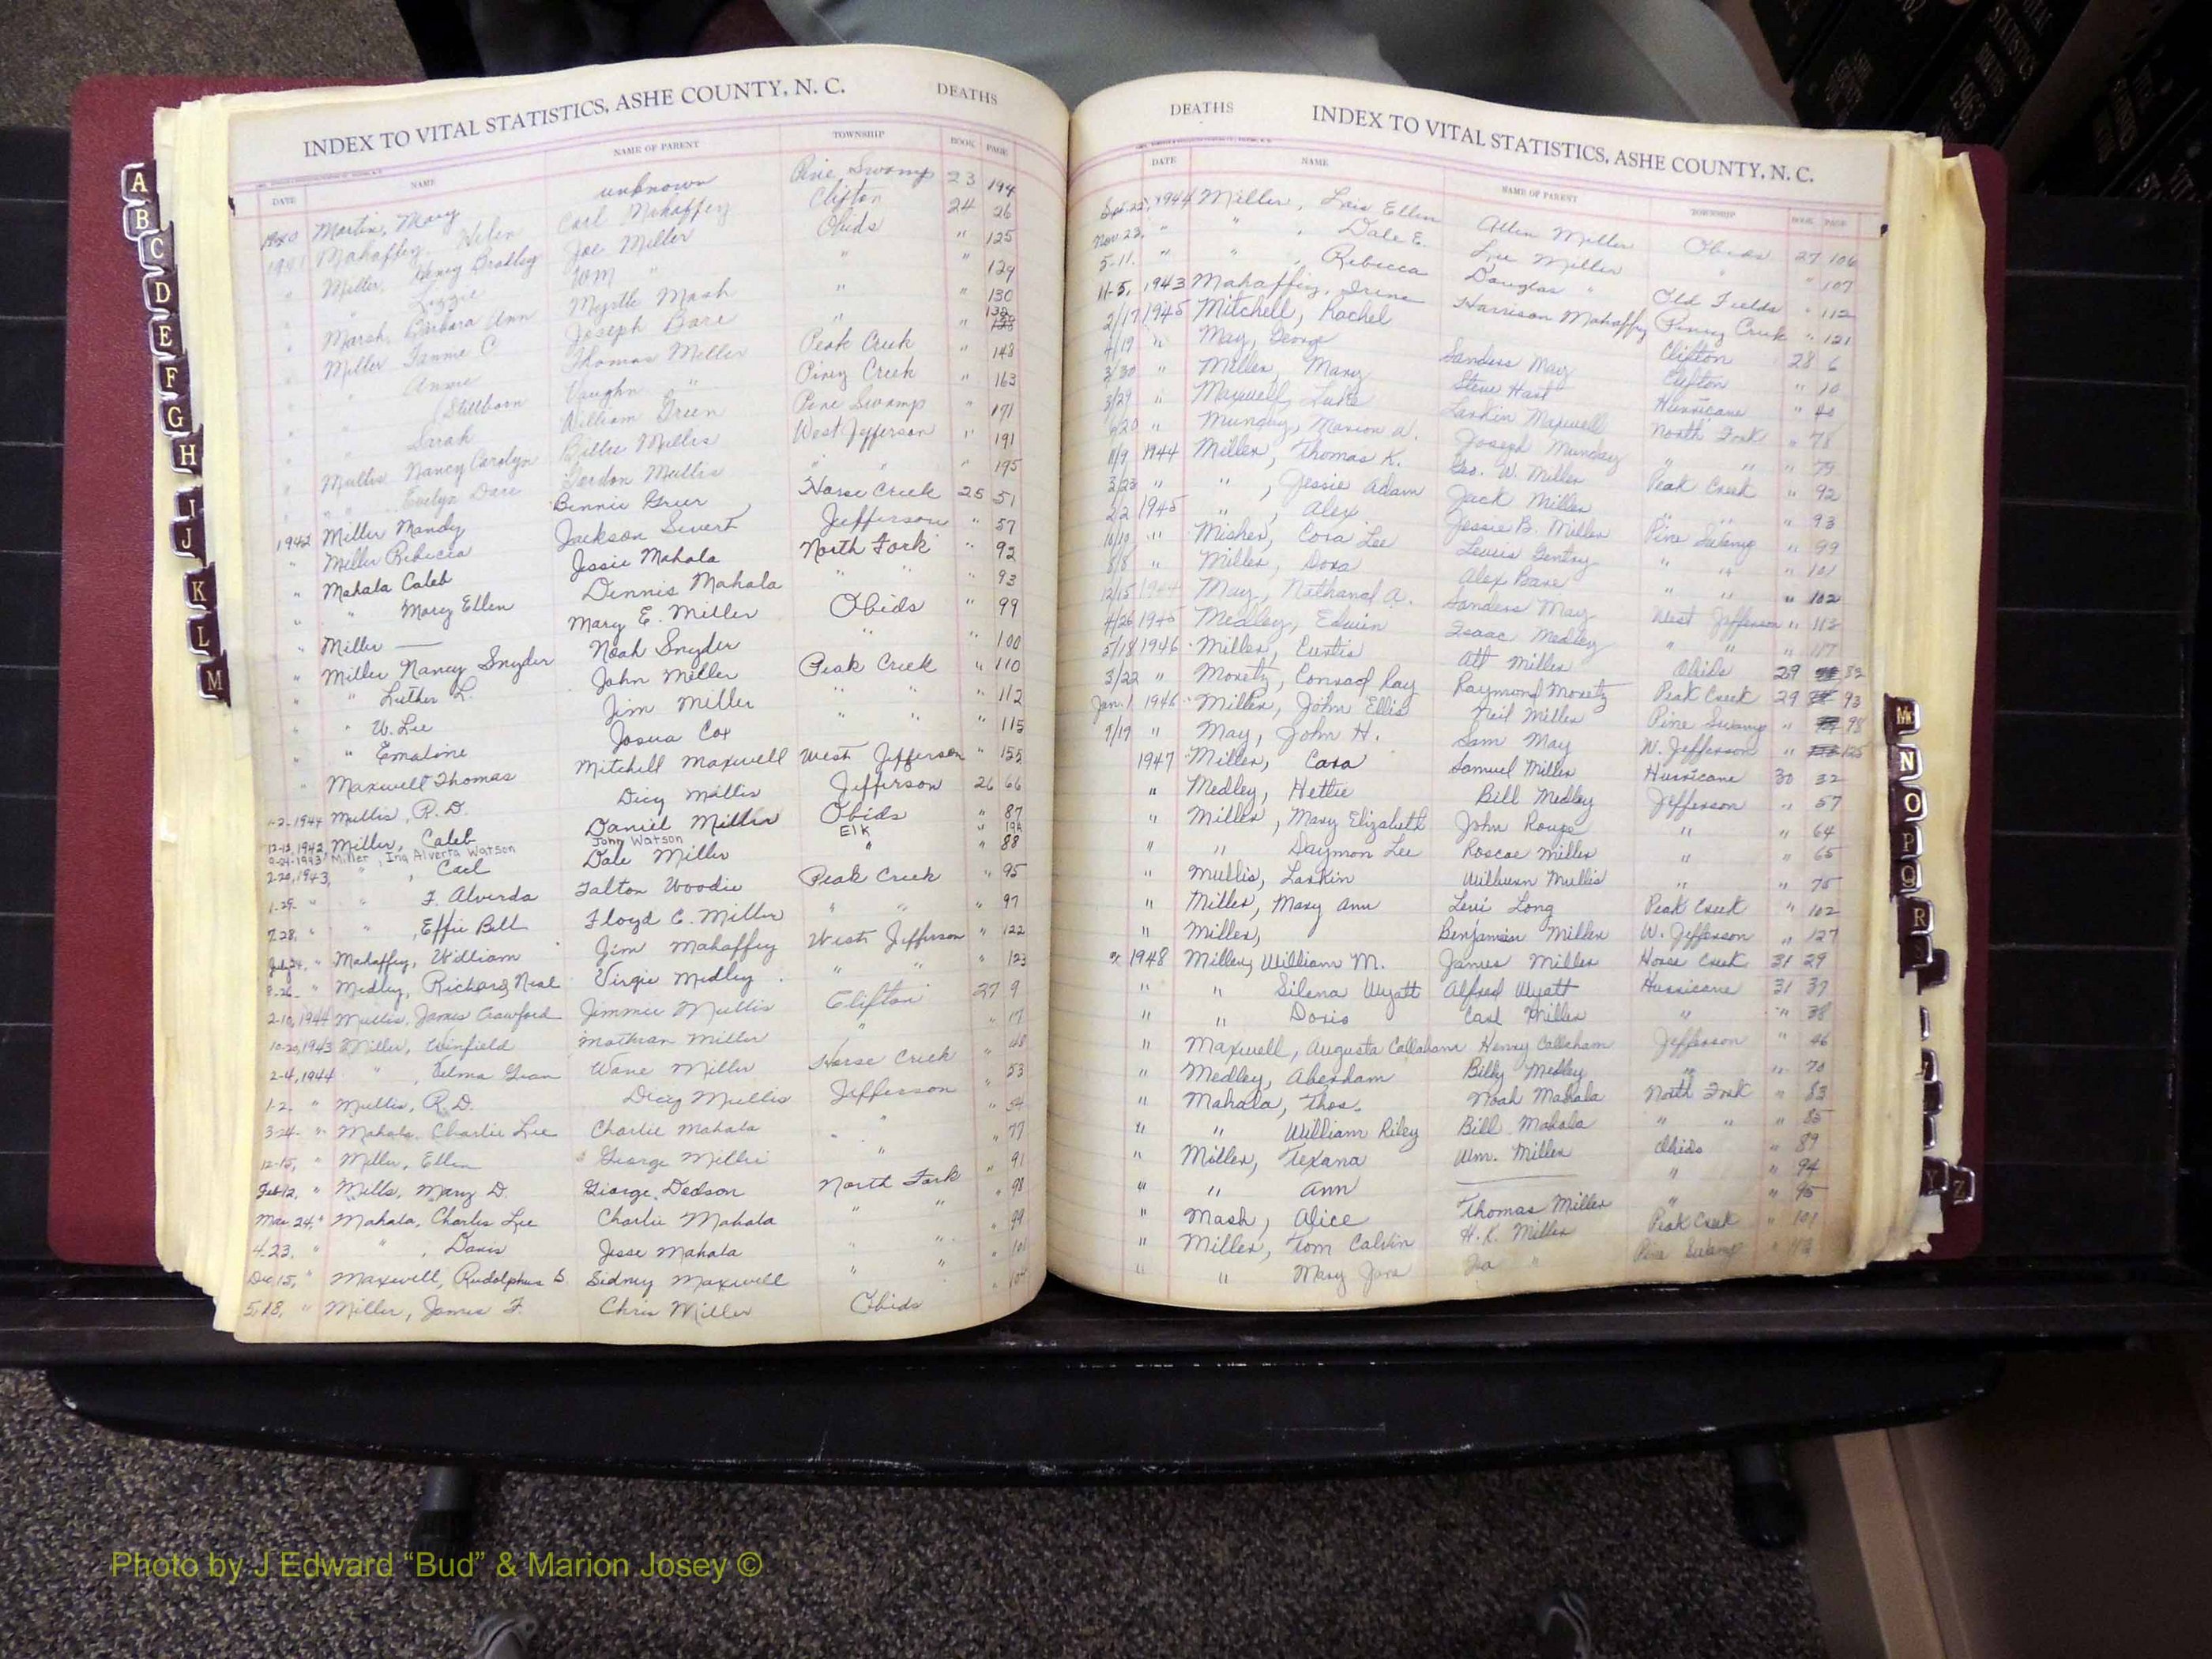 INDEX TO VITAL STATISTICS, ASHE COUNTY, N. C. DEATHS
DATE NAME NAME OF PARENT TOWNSHIP BOOK PAGE
1940 Martin, Mary unknown Pine Swamp 23 194
1941 Mahaffey, Helen Carl Mahaffey Clifton 24 26
" Miller, Henry Bradley Joe Miller Obids " 125
" " Lizzie Wm " " " 129
" Marsh, Barbara Ann Myrtle Mash " " 130
" Miller Fannie C Joseph Bare " " 132
" " Annie Thomas Miller Peak Creek " 148
" " (Stillborn Vaughn " Piney Creek " 163
" " Sarah William Green Pine Swamp " 171
" Mullis Nancy Carolyn Billie Mullis West Jefferson " 191
" " Evelyn Dare Gordon Mullis " " " 195
1942 Miller Mandy Bennie Greer Horse Creek 25 51
" Miller Rebecca Jackson Jefferson " 57
" Mahala Caleb Jessie Mahala North Fork " 92
" " Mary Ellen Dennis Mahala " " " 93
" Miller — Mary E. Miller Obids " 99
" Miller Nancy Snyder Noah Snyder " " 100
" " Luther L. John Miller Peak Creek " 110
" " W. Lee Jim Miller " " " 112
" " Emaline Josua Cox " " " 115
" Maxwell Thomas Mitchell Maxwell West Jefferson " 155
1-2-1944 Mullis, R. D. Dicy Mullis Jefferson 26 66
12-13,1942, Miller, Caleb Daniel Miller Obids " 87
9-24-1943 Miller, Ina Alverta Watson John Watson Elk " 19A
2-20,1943, " , Carl Dale Miller " " 88
1-29- " " F. Alverda Talton Woodie Peak Creek " 95
7.28, " " , Effie Bell Floyd C. Miller " " " 97
July 24, " Mahaffey, William Jim Mahaffey West Jefferson " 122
8-26- " Medley, Richard Neal Virgie Medley " " " 123
2-10,1944 Mullis, James Crawford Jimmie Mullis Clifton 27 9
10-20,1943 Miller, Winfield Mathian Miller " " 17
2-4,1944 " , Velma Wane Miller Horse Creek " 48
1-2. " Mullis, R.D. Dicy Mullis Jefferson " 53
3-24- " Mahala, Charlie Lee Charlie Mahala " " 54
12-15, " Miller, Ellen George Miller " " 77
Feb 12, " Mills, Mary D. George Dodson North Fork " 91
Mar. 24, " Mahala, Charlie Lee Charlie Mahala " " " 98
4-23. " " , Davis Jesse Mahala " " " 99
Dec 15, " Maxwell, Rudolphus S. Sidney Maxwell " " " 101
5.18, " Miller, James F. Chris Miller Obids " 104
DEATHS INDEX TO VITAL STATISTICS, ASHE COUNTY, N. C.
DATE NAME NAME OF PARENT TOWNSHIP BOOK PAGE
Sept. 22, 1944 Miller, Lois Ellen Allen Miller Obids 27 106
Nov 23, " " , Dale E. Lee Miller " " 107
5-11. " " , Rebecca Douglas " Old Fields " 112
11-5, 1943 Mahaffey, Irene Harrison Mahaffey Piney Creek " 121
2/17 1945 Mitchell, Rachel Clifton 28 6
4/19 " May, George Sanders May Clifton " 10
3/30 " Miller, Mary Steve Hart Hurricane " 40
3/29 " Maxwell, Luke Larkin Maxwell North Fork " 78
9/20 " Munday, Marion A. Joseph Munday " " " 79
11/9 1944 Miller, Thomas K. Geo. W. Miller Peak Creek " 92
3/23 " " , Jessie Adam Jack Miller " " " 93
2/2 1945 " , Alex Jessie B. Miller Pine Swamp " 99
10/19 " Misher, Cora Lee Lewis Gentry " " " 101
8/8 " Miller, Dora Alex Bare " " " 102
12/15 1944 May, Nathanal A. Sanders May West Jefferson " 113
4/26 1945 Medley, Edwin Isaac Medley " " " 117
5/18 1946 Miller, Curtis Att Miller Obids 29 83
3/22 " Moretz, Conrad Ray Raymond Moretz Peak Creek 29 93
Jan. 1 1946 Miller, John Ellis Neil Miller Pine Swamp " 98
9/17 " May, John H. Sam May W. Jefferson " 125
1947 Miller, Cara Samuel Miller Hurricane 30 32
" Medley, Hettie Bill Medley Jefferson " 57
" Miller, Mary Elizabeth John Roupe " " 64
" " Daymon Lee Roscoe Miller " " 65
" Mullis, Larkin Wilburn Mullis " " 75
" Miller, Mary Ann Levi Long Peak Creek " 102
" Miller, Benjamin Miller W. Jefferson " 127
1948 Miller, William M. James Miller Horse Creek 31 29
" " Silena Wyatt Alfred Wyatt Hurricane 31 37
" " Doris Carl Miller " " 38
" Maxwell, Augusta Callaham Henry Callaham Jefferson " 46
" Medley, Aberham Billy Medley " " 70
" Mahala, Thos. Noah Mahala North Fork " 83
" " William Riley Bill Mahala " " " 85
" Miller, Texana Wm. Miller Obids " 89
" " Ann — " " 94
" Mash, Alice Thomas Miller " " 95
" Miller, Tom Calvin H. K. Miller Peak Creek " 101
" " Mary Jane Ira " Pine Swamp "
A
B
C
D
E
F
G
H
I
J
K
L
M
Mc
N
O
P
Q
R
Y
Z
VITAL STATISTICS
1963
Photo by J Edward “Bud” & Marion Josey ©